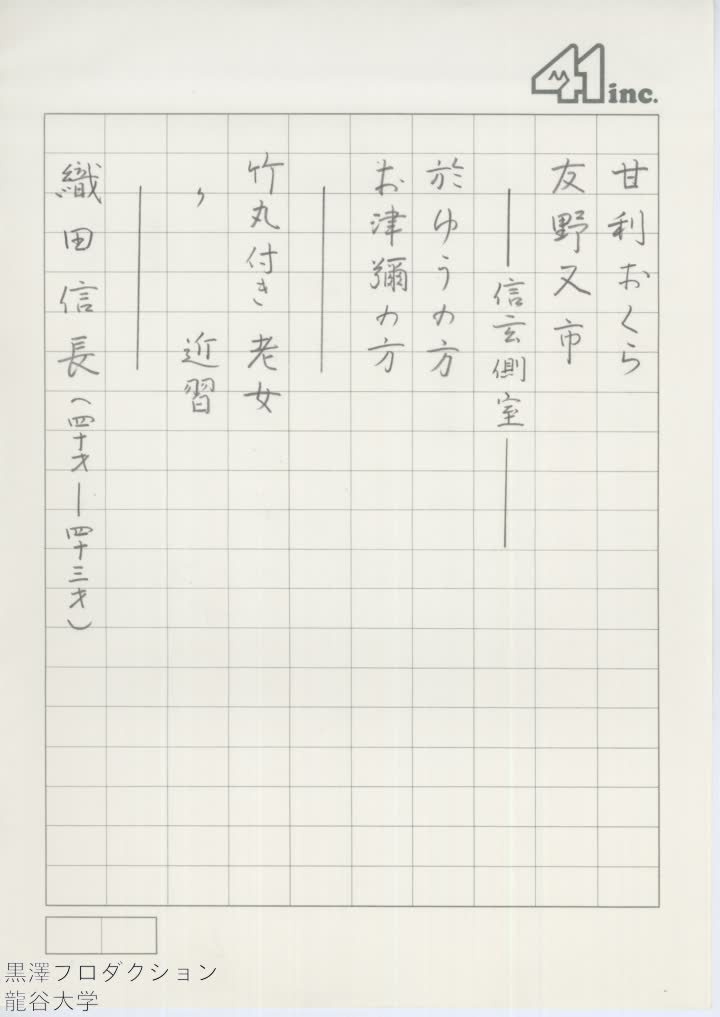 41 inc.
甘利おくら
友野又市
——信玄側室——
於ゆうの方
お津彌の方
————
竹丸付き老女
〃 近習
————
織田信長(四十才—四十三才)
黒澤フロダクション
龍谷大学